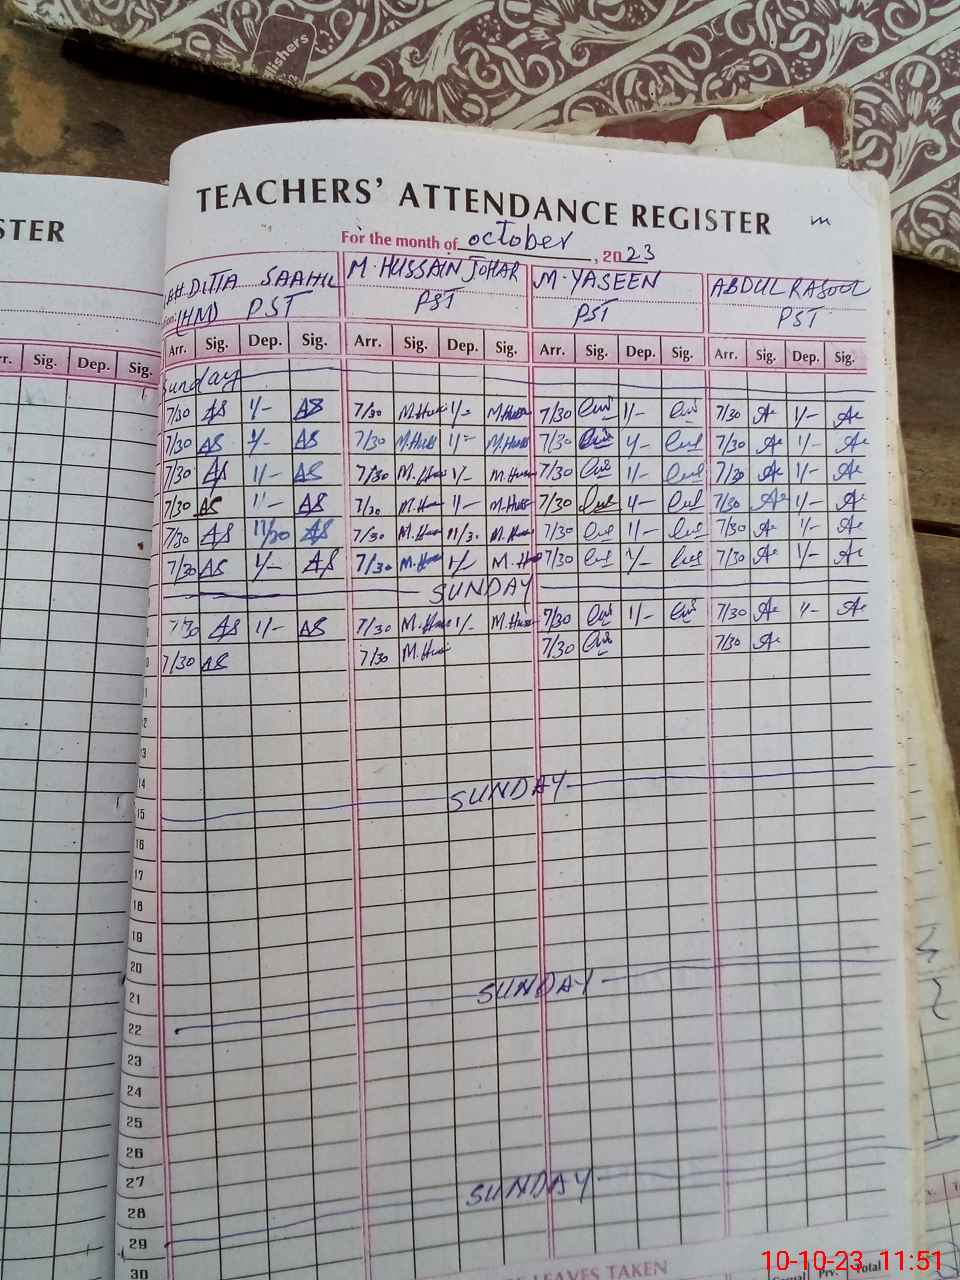 blishers
STER
TEACHERS' ATTENDANCE REGISTER
For the month of october, 2023
DITTA SAAHIL M. HUSSAIN JOHAR M. YASEEN ABDUL RASOOL
(HM) PST PST PST PST
Sig. Dep. Sig. Arr. Sig. Dep. Sig. Arr. Sig. Dep. Sig. Arr. Sig. Dep. Sig. Arr. Sig. Dep. Sig.
Sunday
7/30 AS 1/- AS 7/30 M.Hus 1/- M.Huss 7/30 1/- 7/30 1/-
7/30 AS 1/- AS 7/30 M.Huss 1/- M.Huss 7/30 1/- 7/30 1/-
7/30 AS 1/- AS 7/30 M.Hus 1/- M.Hus 7/30 1/- 7/30 1/-
7/30 AS 1/- AS 7/30 M.Hus 1/- M.Huss 7/30 1/- 7/30 1/-
7/30 AS 11/30 AS 7/30 M.Hus 11/30 M.Hus 7/30 1/- 7/30 1/-
7/30 AS 1/- AS 7/30 M.Hus 1/- M.Hu 7/30 1/- 7/30 1/-
SUNDAY
7/30 AS 1/- AS 7/30 M.Hus 1/- M.Huss 7/30 1/- 7/30 1/-
7/30 AS 7/30 M.Hus 7/30 7/30
14 SUNDAY
15
16
17
18
19
20
21 SUNDAY
22
23
24
25
26
27 SUNDAY
28
29
30
LEAVES TAKEN
Prv. Total
10-10-23 11:51